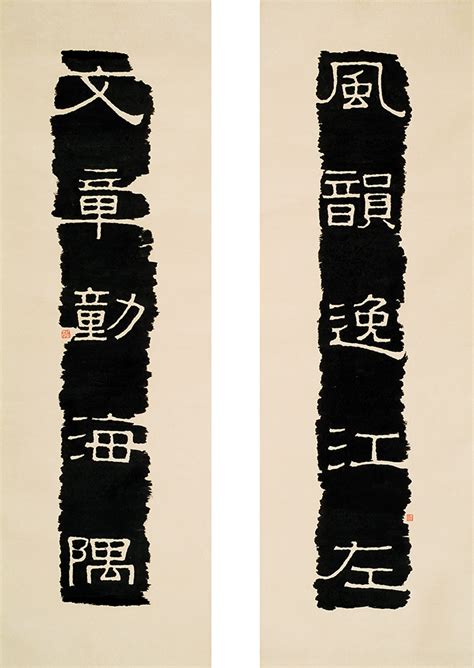 風韻逸江左
文章動海隅